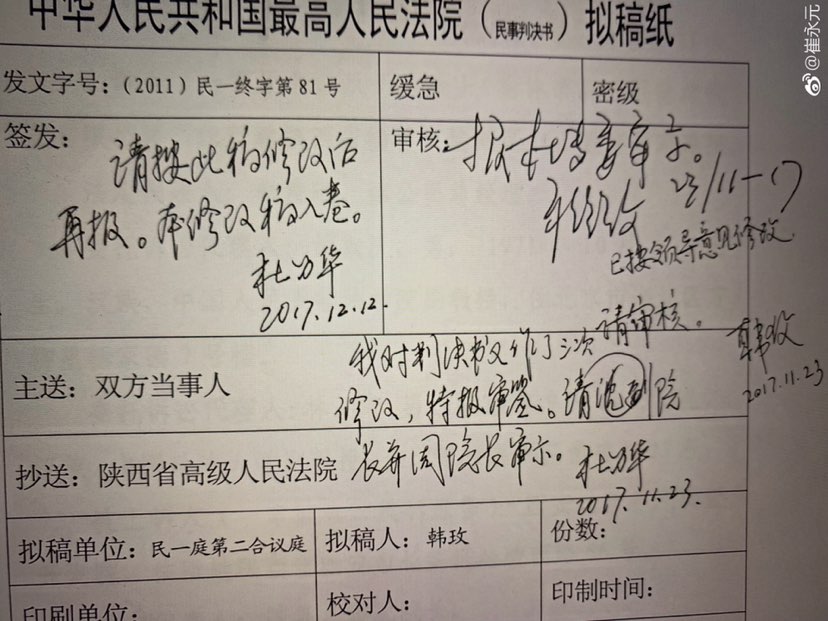 中华人民共和国最高人民法院（民事判决书）拟稿纸
@崔永元
发文字号：（2011）民一终字第81号
缓急
密级
签发：
请按此稿修改后
再报。本修改稿入卷。
杜万华
2017.12.12.
审核：
报杜专委审示。
23/11-17
已按领导意见修改
请审核。
韩玫
2017.11.23
主送：双方当事人
我对判决书又作了三次
修改，特报审签。请沈副院
长并周院长审示。
杜万华
2017.11.23.
抄送：陕西省高级人民法院
拟稿单位：民一庭第二合议庭
拟稿人：韩玫
份数：
印刷单位：
校对人：
印制时间：